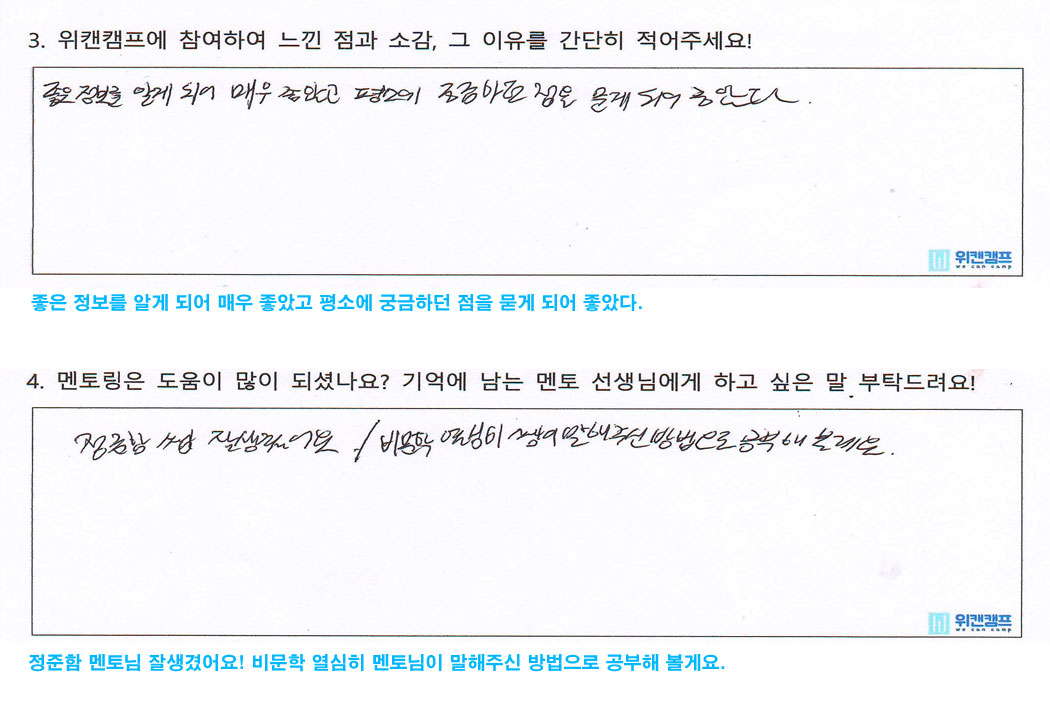 3. 위캔캠프에 참여하여 느낀 점과 소감, 그 이유를 간단히 적어주세요!
좋은 정보를 알게 되어 매우 좋았고 평소에 궁금하던 점을 묻게 되어 좋았다.
위캔캠프
we can camp
좋은 정보를 알게 되어 매우 좋았고 평소에 궁금하던 점을 묻게 되어 좋았다.
4. 멘토링은 도움이 많이 되셨나요? 기억에 남는 멘토 선생님에게 하고 싶은 말 부탁드려요!
정준함 쌤 잘생겼어요! 비문학 열심히 쌤이 말해주신 방법으로 공부해 볼게요.
위캔캠프
we can camp
정준함 멘토님 잘생겼어요! 비문학 열심히 멘토님이 말해주신 방법으로 공부해 볼게요.